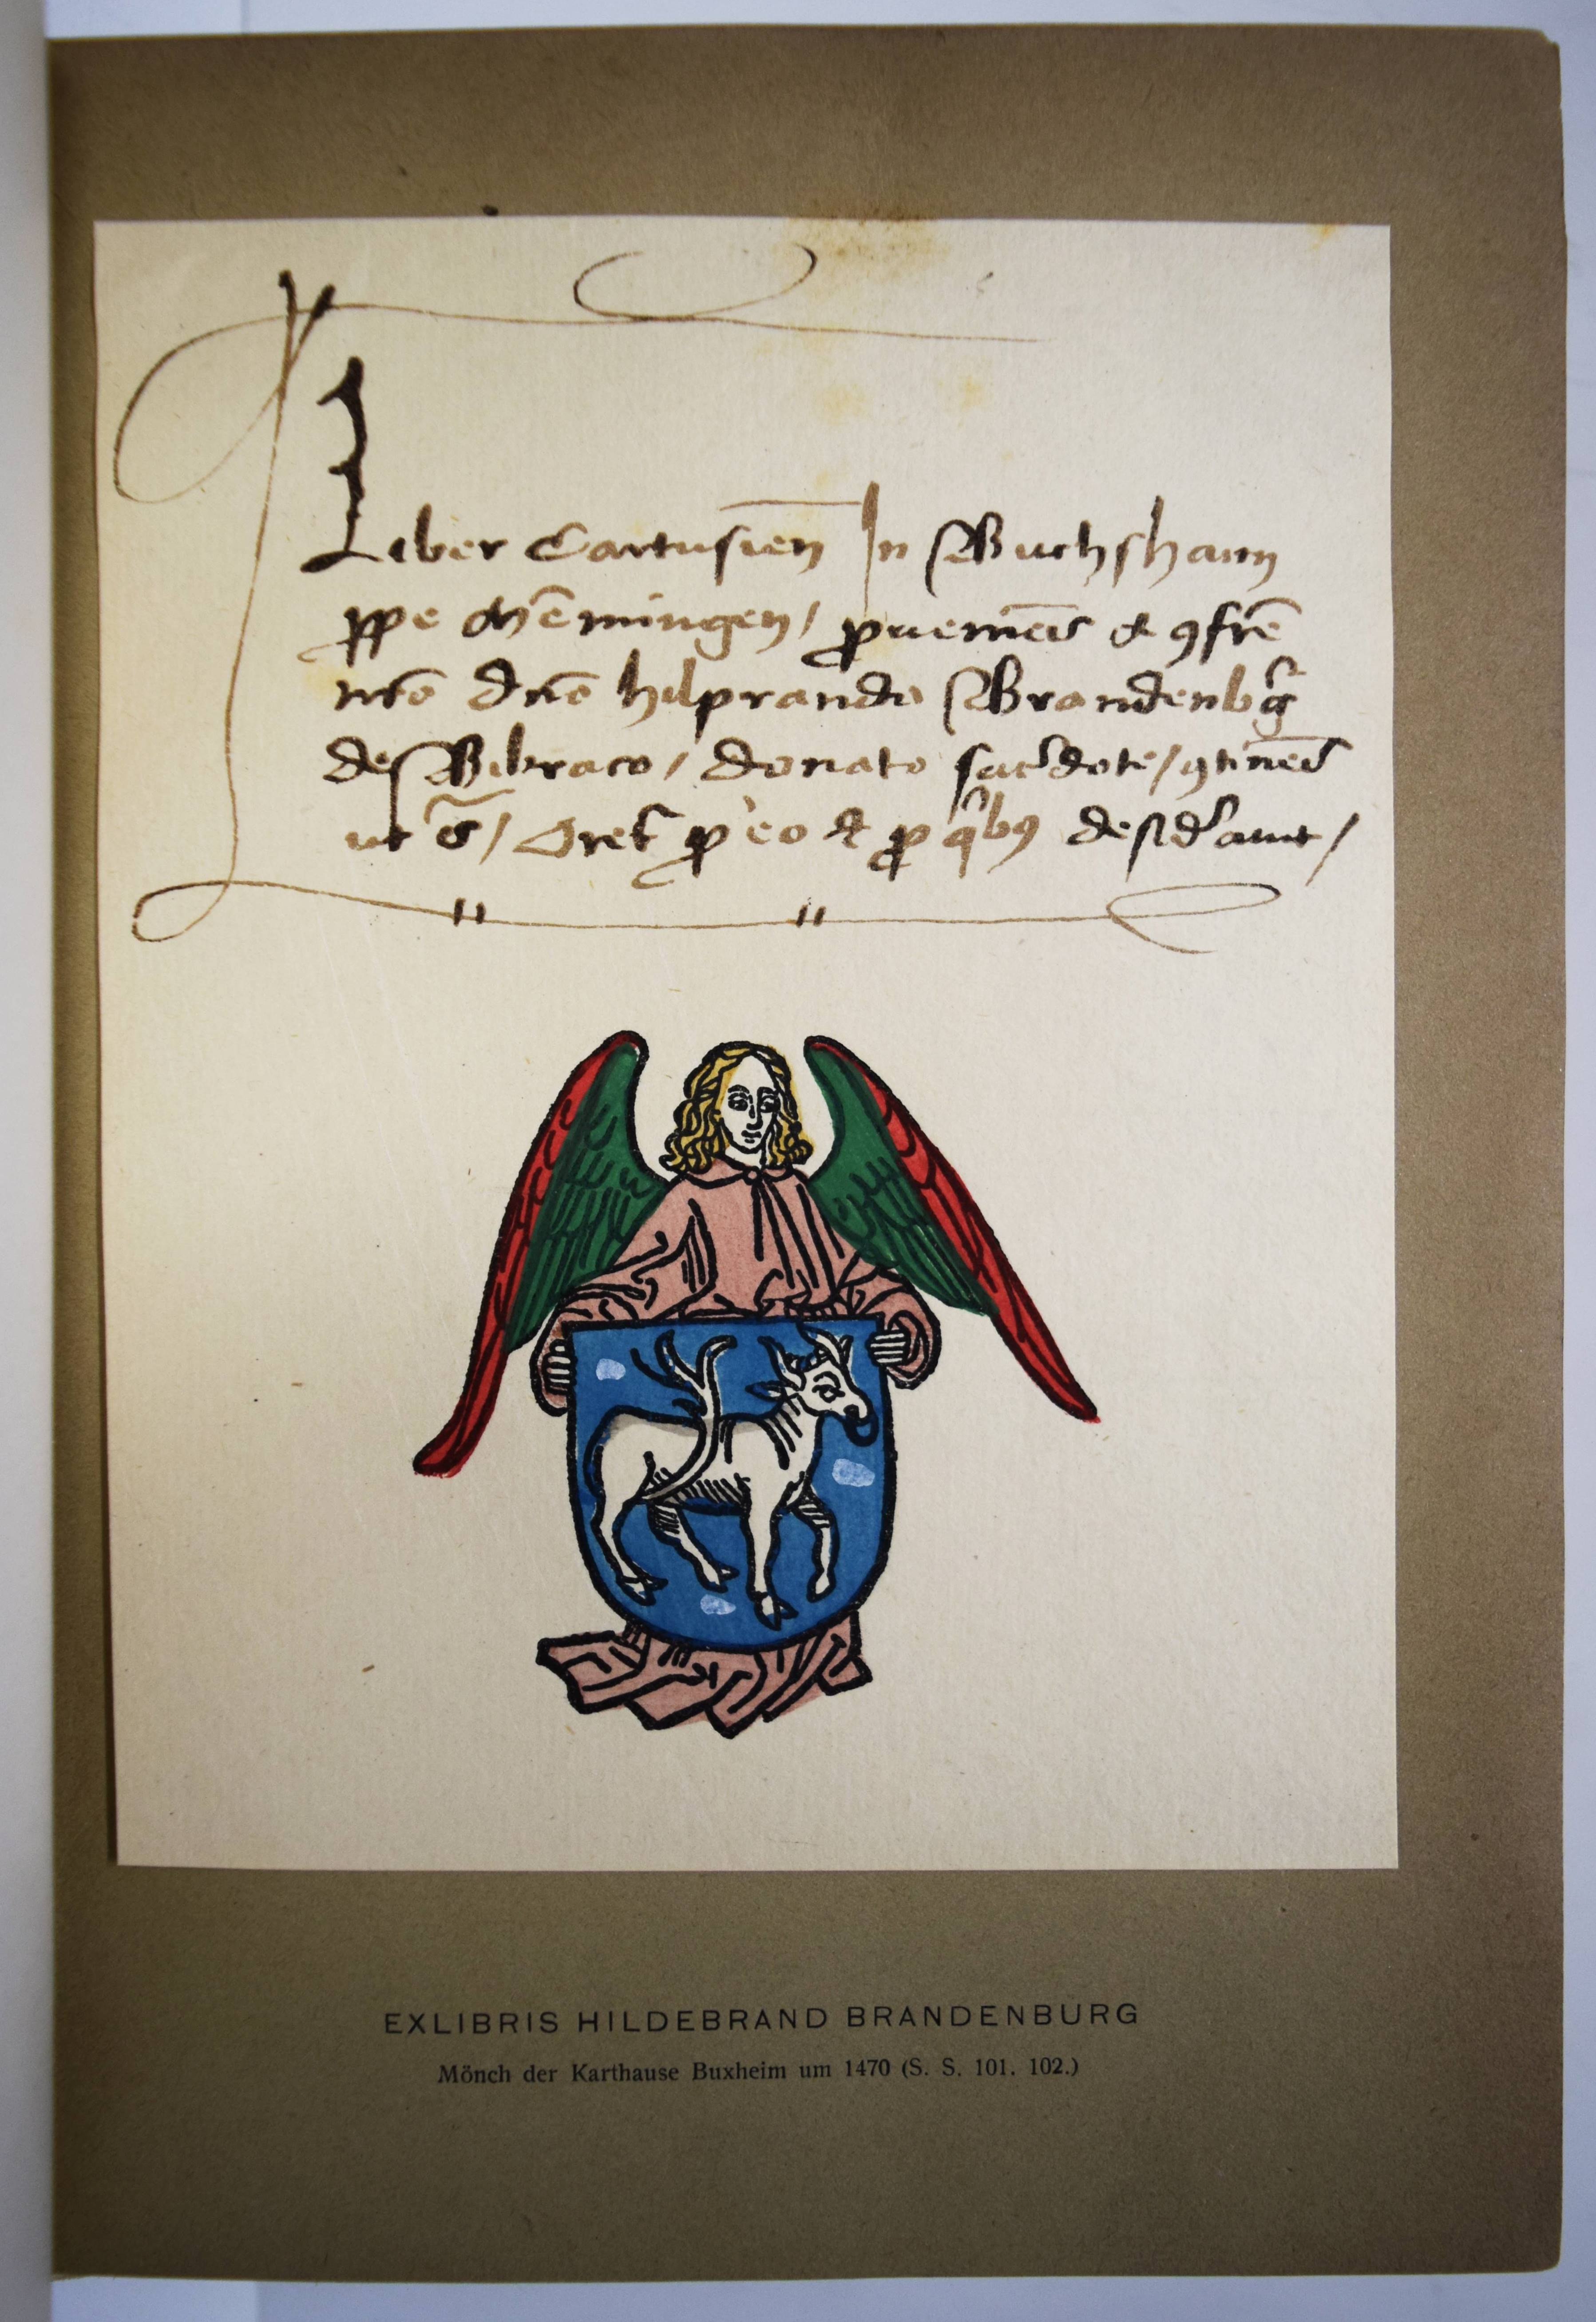 Liber Cartusien̄ In Buchshaim
ꝓpe Mēmingen / ꝓueniēs & ꝯfrē
nrō dnō hilprando Brandenbg̃
de Bibraco / donato sac͛dote / ꝯtinēs
ut ꝓ eo & ꝓ qⁱbꝯ desid͛auit /
EXLIBRIS HILDEBRAND BRANDENBURG
Mönch der Karthause Buxheim um 1470 (S. S. 101. 102.)